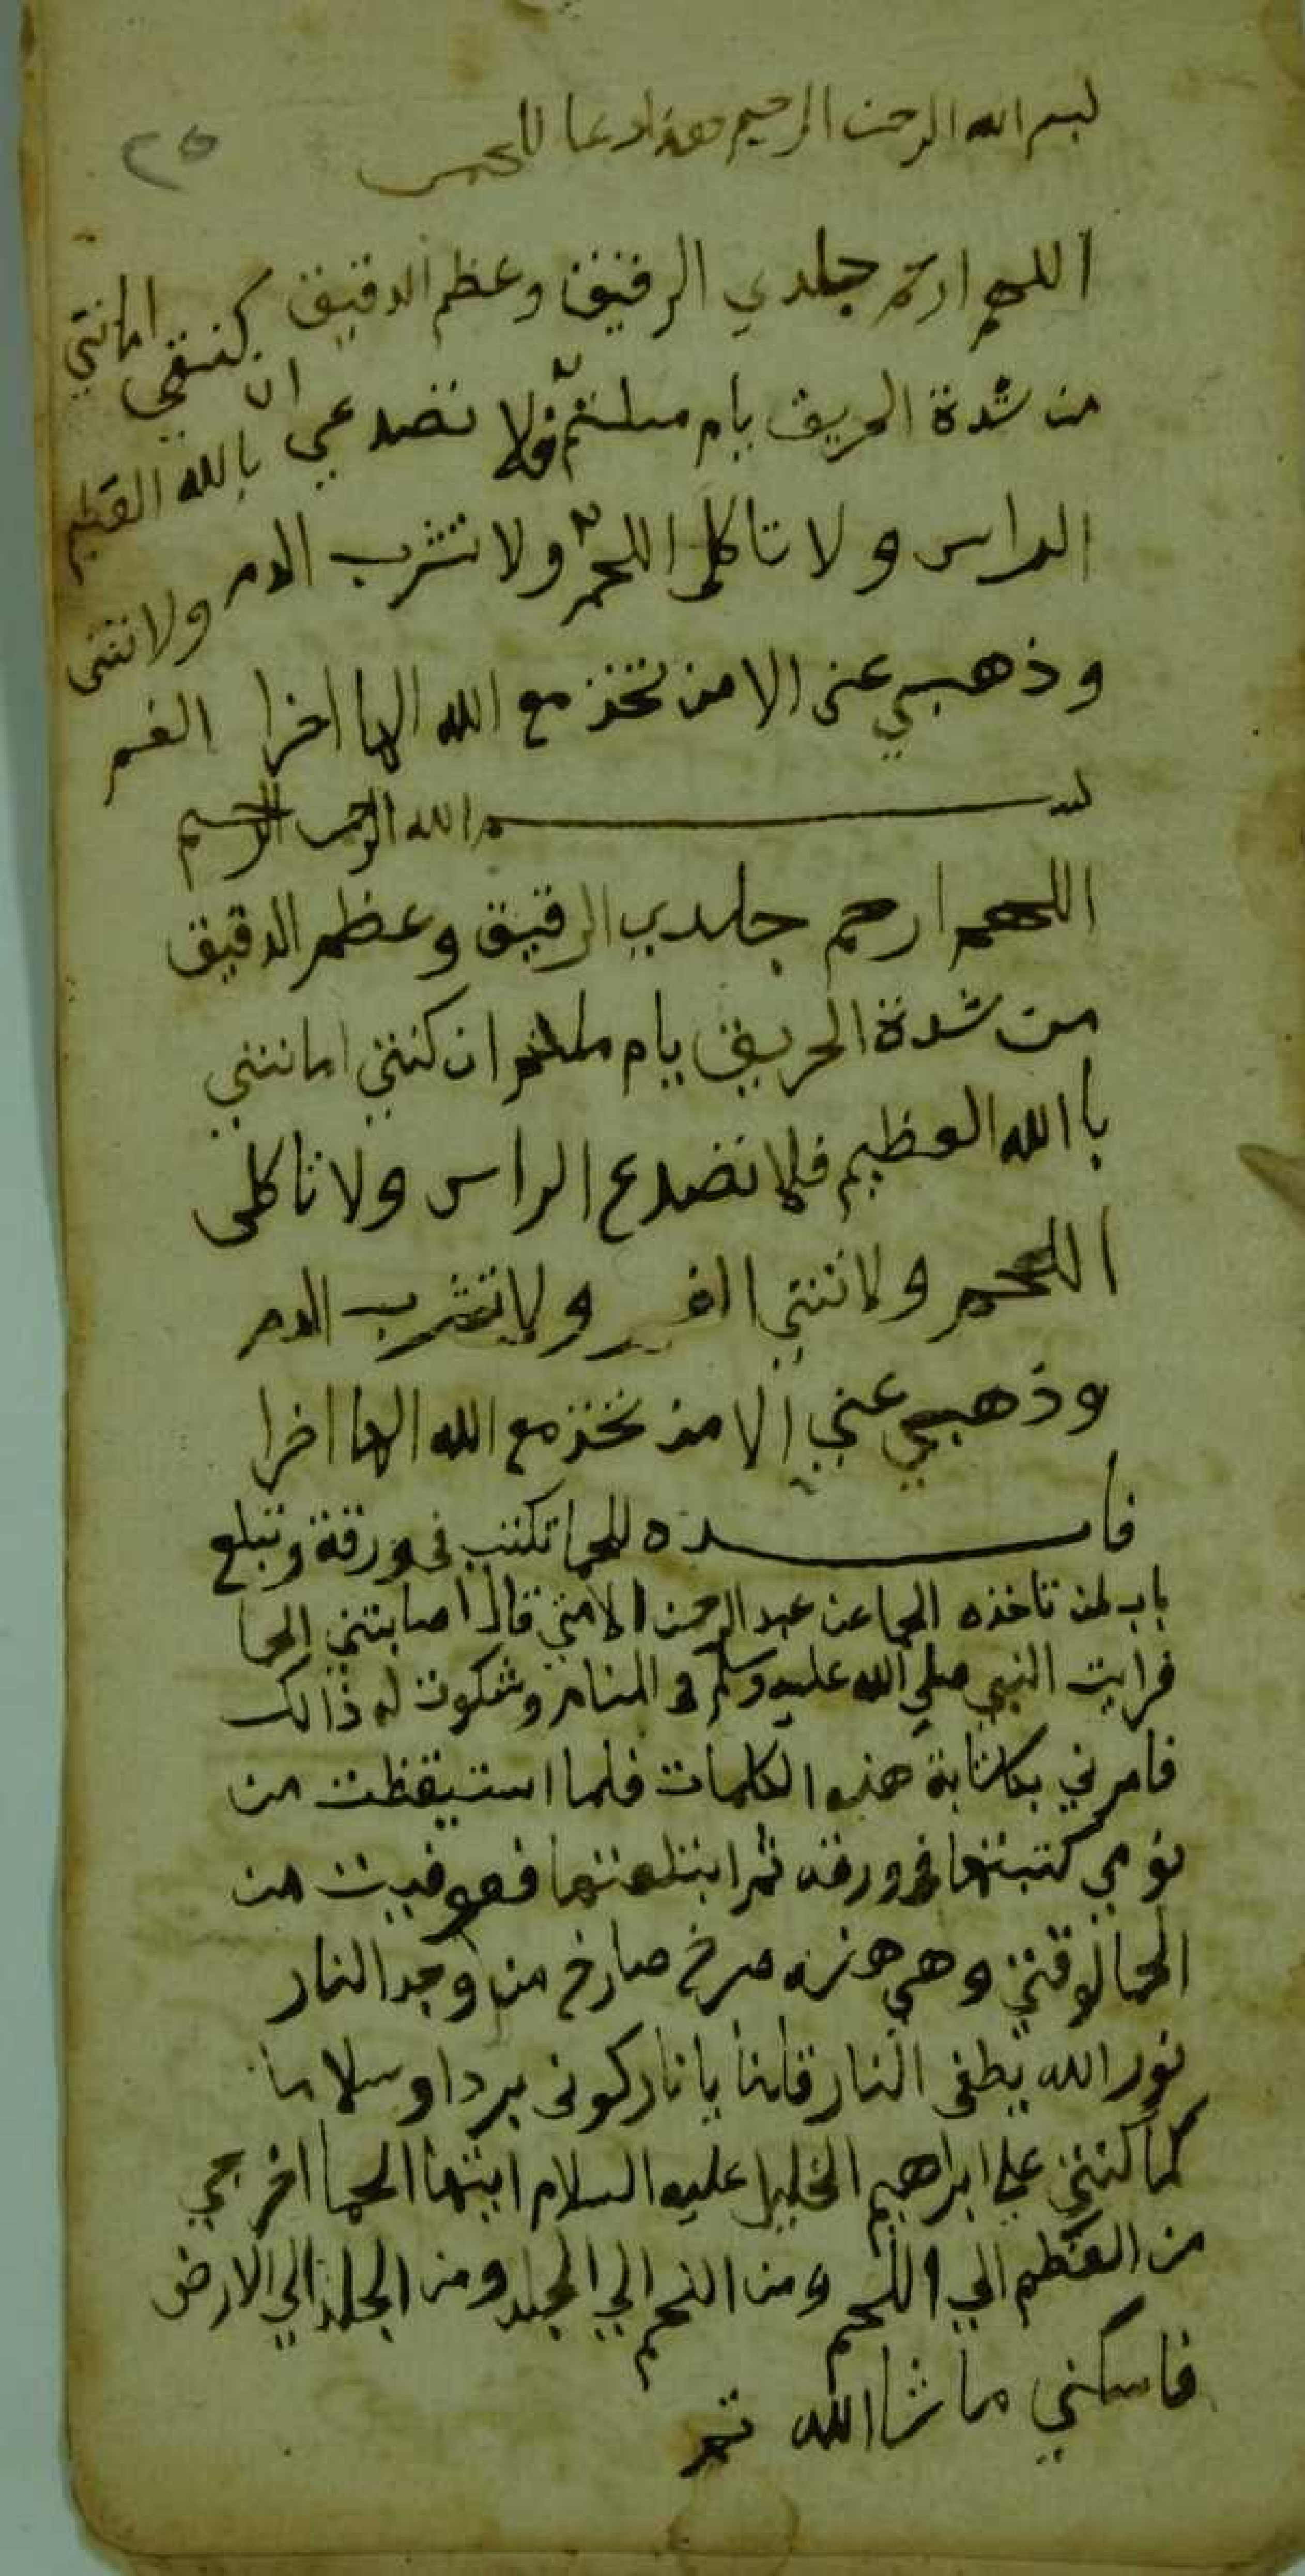 بسم الله الرحمن الرحيم هذا دعا للحمى
٢٥
اللهم ارحم جلدي الرقيق وعظم الدقيق
من شدة الحريق يام ملتم فلا تصدعي ان كنتي امانتي بالله العظيم
الراس ولا تاكلى اللحم ولا تشرب الدم ولا تنتني
وذهبي عني الا من تخذ مع الله الها اخرا الفم
بسم الله الرحمن الرحيم
اللهم ارحم جلدي الرقيق وعظم الدقيق
من شدة الحريق يام ملتم ان كنتي امانتني
با الله العظيم فلا تصدع الراس ولا تاكلى
اللحم ولا تنتني الفم ولا تشرب الدم
وذهبي عني الا من تخذ مع الله الها اخرا
فايده للحما تكتب فى ورقة وتبلع
باب لمن تاخذه الحما عن عبد الرحمن قال اصابتني الحما
فرايت النبي صلي الله عليه وسلم فى المنام وشكوت له ذالك
فامرني بكتابة هذه الكلمات فلما استيقظت من
نومي كتبتها فى ورقه ثم ابتلعتها فعوفيت من
الحما لوقتي وهي هذه صرخ صارخ من وجد النار
نور الله يطفى النار قلنا يا نار كونى بردا وسلاما
كما كنتي علي ابراهيم الخليل عليه السلام ايتها الحما اخرجي
من العظم الي اللحم ومن اللحم الي الجلد ومن الجلد الي الارض
فاسكني ما شا الله تم